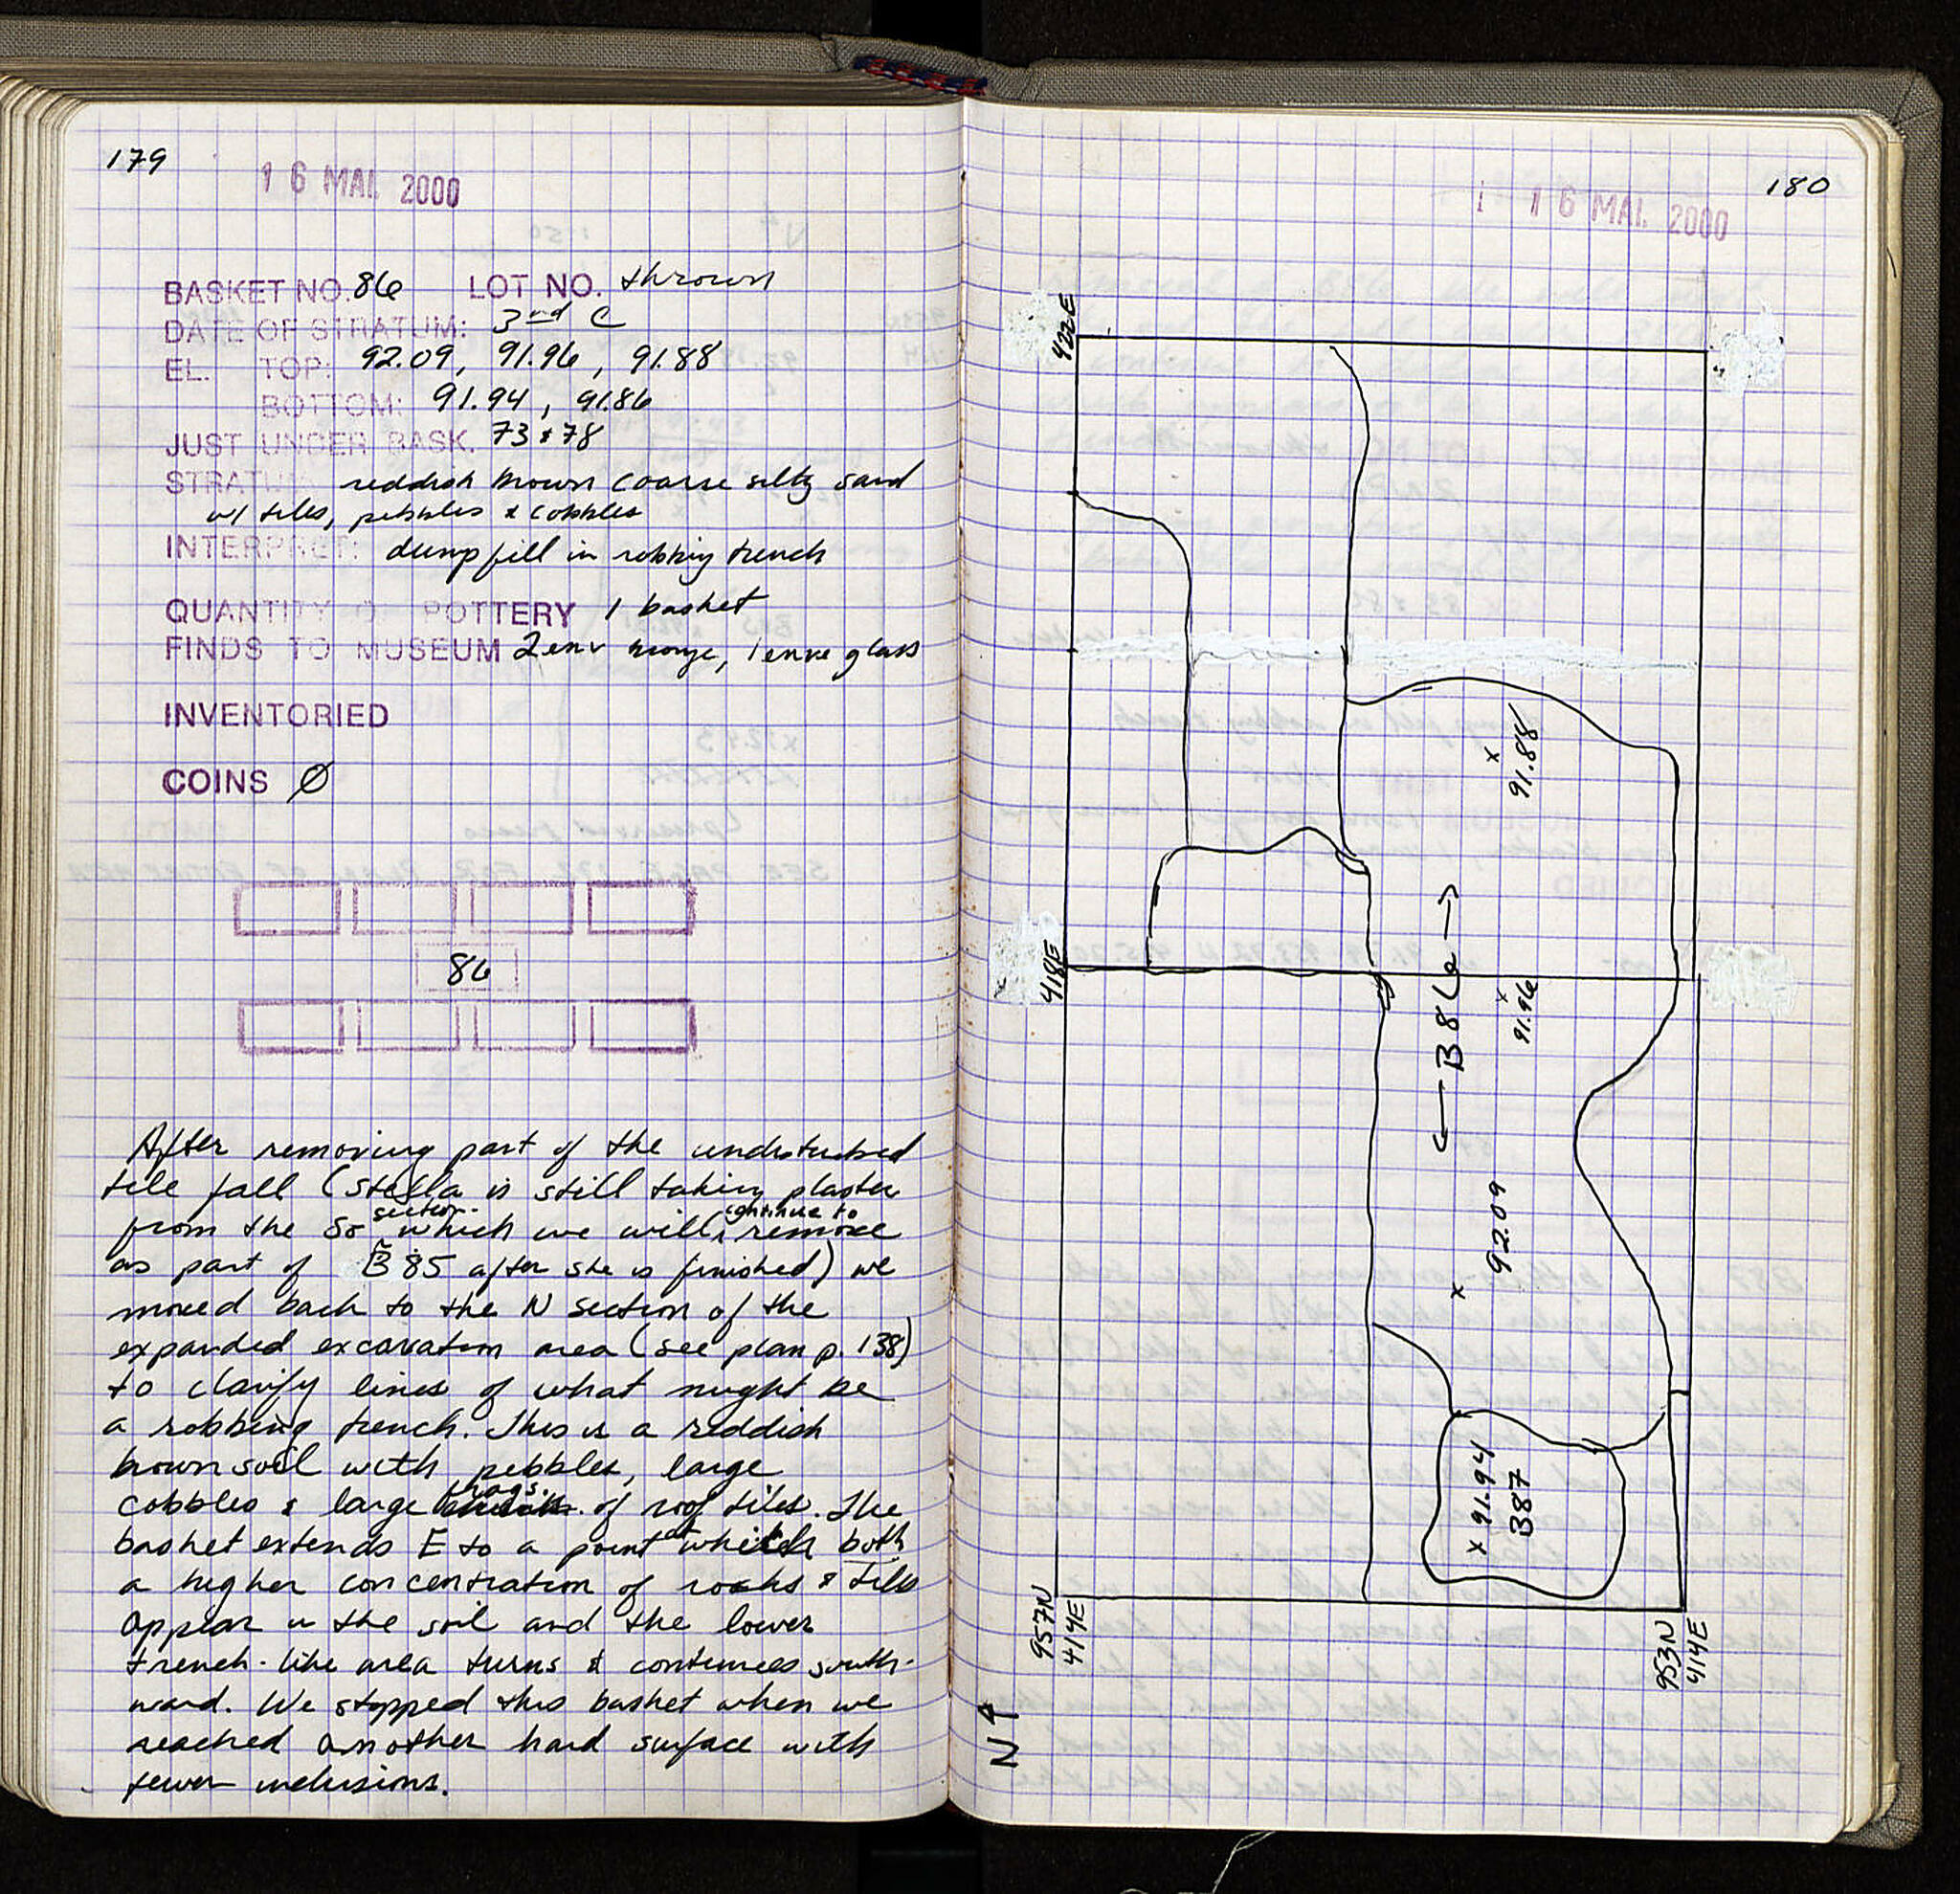 179
16 MAI. 2000
BASKET NO. 86 LOT NO. thrown
DATE OF STRATUM: 3nd C
EL. TOP: 92.09, 91.96, 91.88
BOTTOM: 91.94, 91.86
JUST UNDER BASK. 73 & 78
STRATUM reddish brown coarse silty sand
w/ tiles, pebbles & cobbles
INTERPRET: dump fill in robbing trench
QUANTITY OF POTTERY 1 basket
FINDS TO MUSEUM 2 env, 1 enve glass
INVENTORIED
COINS Ø
86
After removing part of the undisturbed
tile fall (Stella is still taking plaster
from the So section which we will continue to remove
as part of B85 after she is finished) we
moved back to the N section of the
expanded excavation area (see plan p. 138)
to clarify lines of what might be
a robbing trench. This is a reddish
brown soil with pebbles, large
cobbles & large frags. of roof tiles. The
basket extends E to a point at which both
a higher concentration of rocks & tiles
appear in the soil and the lower
trench-like area turns & continues south-
ward. We stopped this basket when we
reached another hard surface with
fewer inclusions.
180
16 MAI. 2000
422E
91.88
418E
← B86 →
91.96
92.09
91.94
B87
957N
414E
953N
414E
N